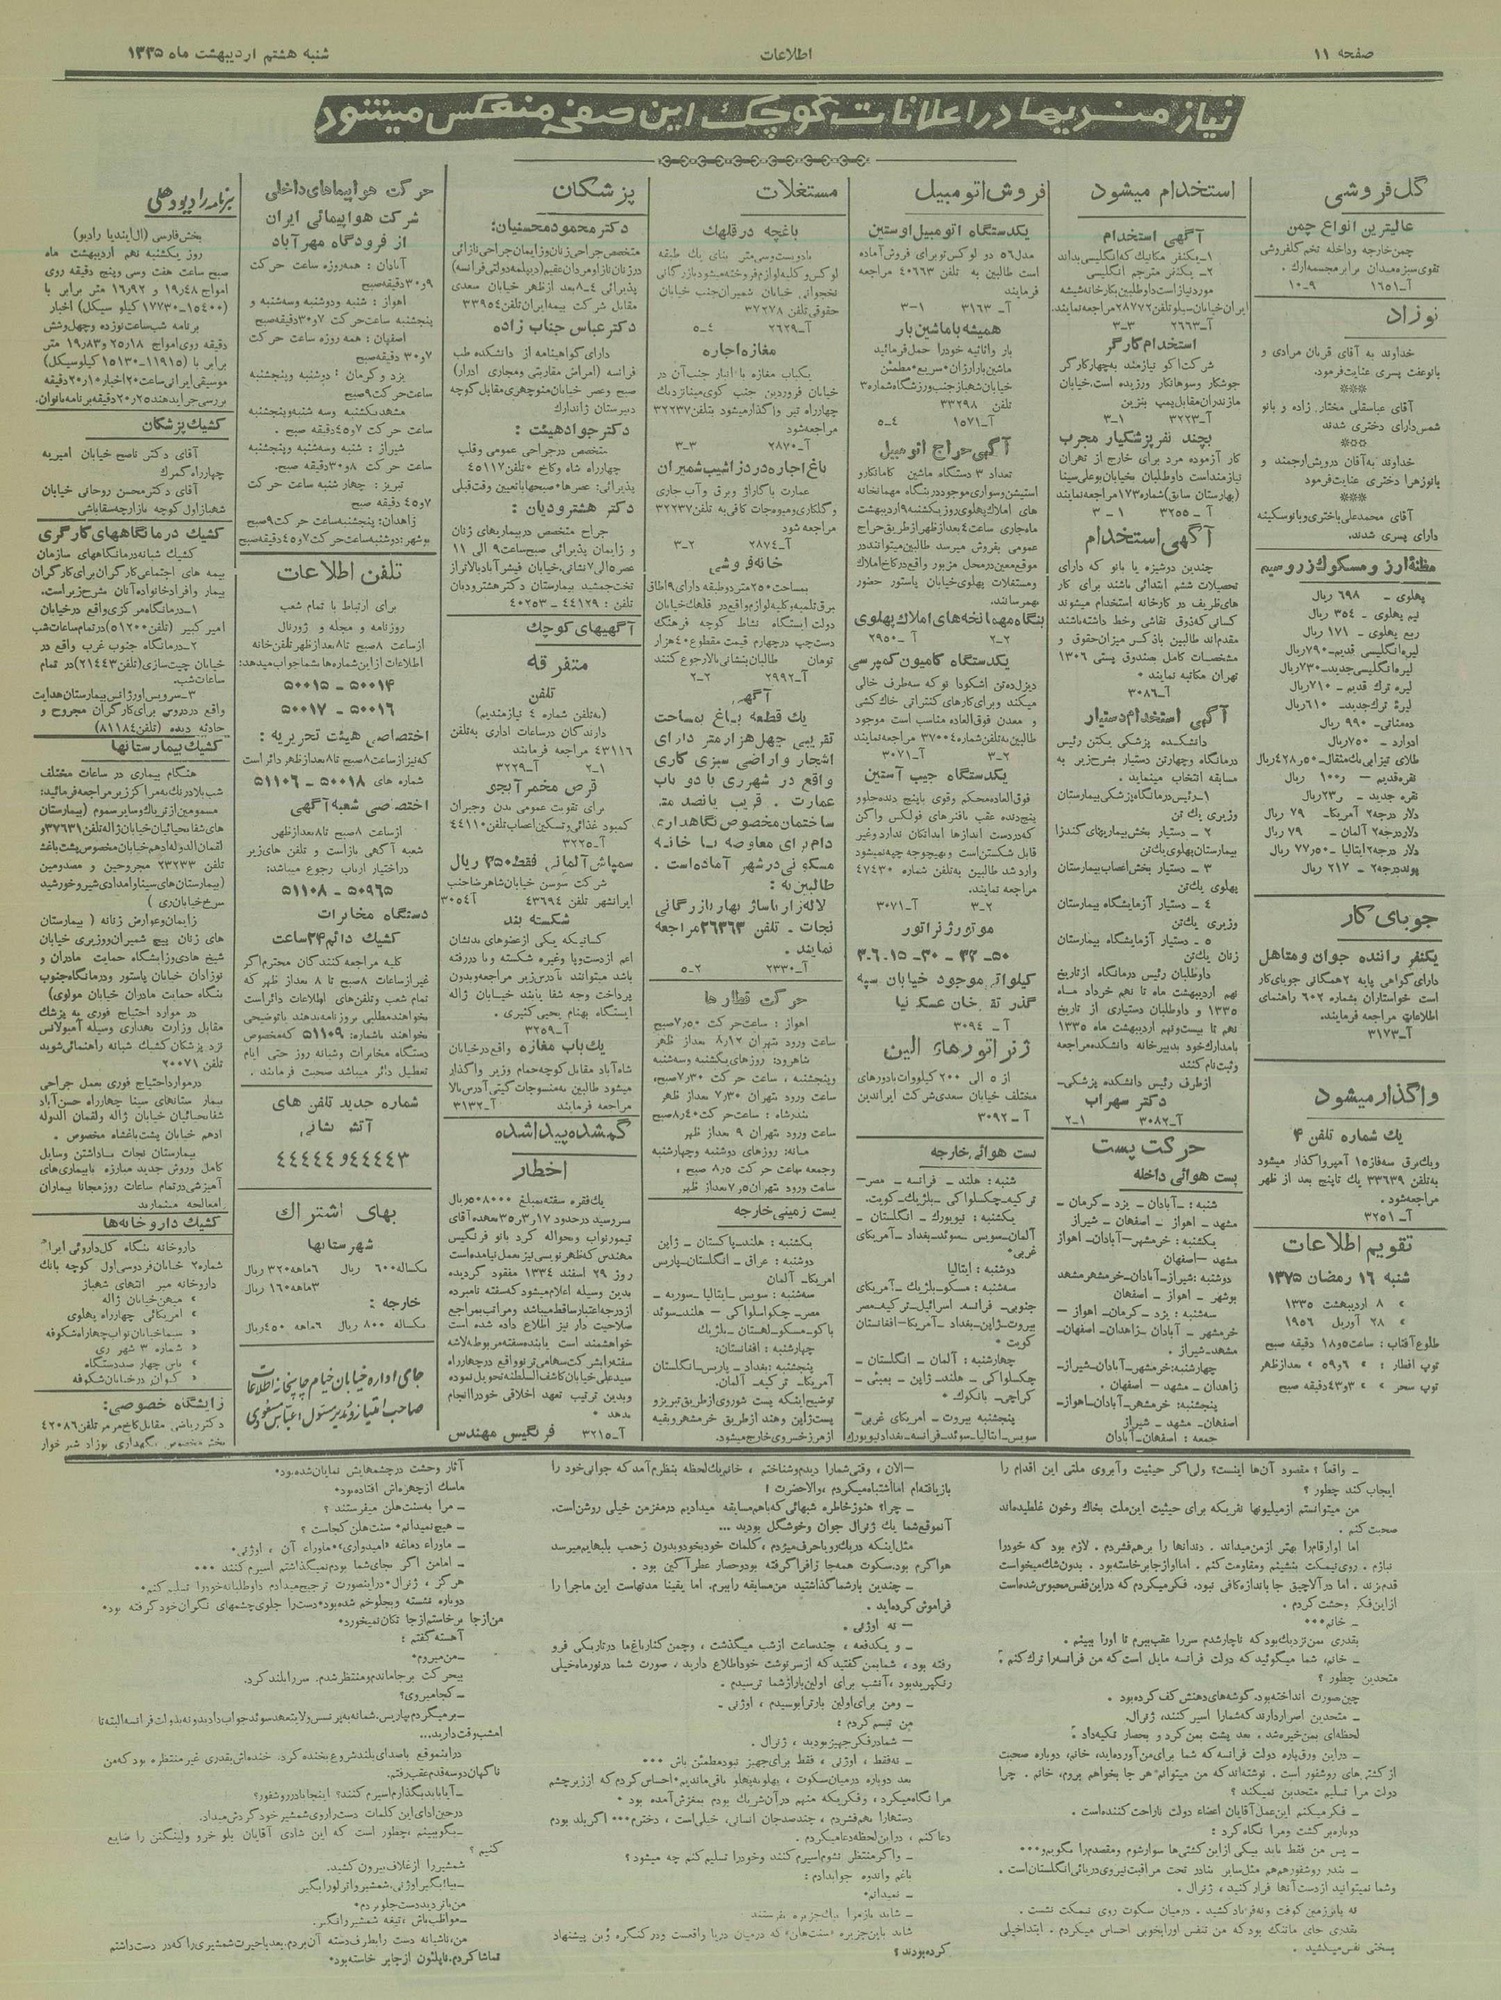 صفحه ۱۱
اطلاعات
شنبه هشتم اردیبهشت ماه ۱۳۳۵
نیازمندیها در اعلانات کوچک این صفحه منعکس میشود
گل فروشی
عالیترین انواع چمن
چمن خارجه و داخله تخم گلفروشی
تقوی سبزه میدان برابر مجسمه ارك .
آ-۱۶۵۱ ۹-۱۰
نوزاد
خداوند به آقای قربان مرادی و
بانو عفت پسری عنایت فرمود.
***
آقای عباسقلی مختار زاده و بانو
شمس دارای دختری شدند
***
خداوند به آقای درویش ارجمند و
بانو زهرا دختری عنایت فرمود
***
آقای محمد علی باختری و بانو سکینه
دارای پسری شدند.
مظنه ارز و مسکوك زر و سیم
پهلوی - ۶۹۸ ریال
نیم پهلوی - ۳۵۴ ریال
ربع پهلوی - ۱۷۱ ریال
لیره انگلیسی قدیم-۷۹۰ ریال
لیره انگلیسی جدید-۷۳۰ ریال
لیره ترك قدیم - ۷۱۰ ریال
لیره ترك جدید- ۶۱۰ ریال
ده مناتی- ۹۹۰ ریال
ادوارد - ۷۵۰ ریال
طلای تیزابی یك مثقال-۴۲۸٫۵۰ ریال
دلار درجه۲ آمریکا- ۷۹ ریال
دلار درجه۲ آلمان - ۷۹ ریال
دلار درجه۲ ایتالیا -۷۷٫۵۰ ریال
پوند درجه۲ - ۲۱۷ ریال
جویای کار
یکنفر راننده جوان و متاهل
دارای گواهی پایه ۲ همگانی جویای کار
است خواستاران بشماره ۶۰۲ راهنمای
اطلاعات مراجعه فرمایند.
آ-۳۱۷۳
واگذار میشود
یك شماره تلفن ۴
و یك برق سه فاز ۱۵ آمپر واگذار میشود
به تلفن ۳۳۶۳۹ یك تا پنج بعد از ظهر
مراجعه شود .
آ-۳۲۵۱
تقویم اطلاعات
شنبه ۱۶ رمضان ۱۳۷۵
» ۸ اردیبهشت ۱۳۳۵
» ۲۸ آوریل ۱۹۵۶
طلوع آفتاب : ساعت ۵ و ۱۸ دقیقه صبح
توپ افطار : » ۶ و ۵۹ » بعد از ظهر
توپ سحر » » ۳ و ۴۳ دقیقه صبح
استخدام میشود
آگهی استخدام
۱-یکنفر مکانیك که انگلیسی بداند
۲- یکنفر مترجم انگلیسی
مورد نیاز است داوطلبین بکارخانه شیشه
ایران خیابان سیلو تلفن ۲۸۷۷۲ مراجعه نمایند.
آ-۲۶۶۳ ۳-۳
استخدام کارگر
شرکت اکو نیازمند به چهار کارگر
جوشکار و سوهانکار ورزیده است.خیابان
مازندران مقابل پمپ بنزین
آ-۳۲۲۳ ۱-۳
بچند نفر پزشکیار مجرب
کار آزموده مرد برای خارج از تهران
نیازمند است داوطلبان بخیابان بوعلی سینا
(بهارستان سابق) شماره ۱۷۳ مراجعه نمایند
آ- ۳۲۵۵ ۱-۳
آگهی استخدام
چندین دوشیزه یا بانو که دارای
تحصیلات ششم ابتدائی باشند برای کار
های ظریف در کارخانه استخدام میشوند
کسانی که ذوق نقاشی و خط داشته باشند
مقدم اند طالبین با ذکر میزان حقوق و
مشخصات کامل صندوق پستی ۱۳۰۶
تهران مکاتبه نمایند •
آ-۳۰۸۶
آگهی استخدام دستیار
دانشکده پزشکی یکتن رئیس
درمانگاه و چهار تن دستیار بشرح زیر به
مسابقه انتخاب مینماید .
۱-رئیس درمانگاه پزشکی بیمارستان
وزیری یك تن
۲ - دستیار بخش بیماریهای کندزا
بیمارستان پهلوی یك تن
۳ - دستیار بخش اعصاب بیمارستان
پهلوی یك تن
۴ - دستیار آزمایشگاه بیمارستان
وزیری یك تن
۵ - دستیار آزمایشگاه بیمارستان
زنان یك تن
داوطلبان رئیس درمانگاه از تاریخ
نهم اردیبهشت ماه تا نهم خرداد ماه
۱۳۳۵ و داوطلبان دستیاری از تاریخ
نهم تا بیست و نهم اردیبهشت ماه ۱۳۳۵
با مدارك خود بدبیرخانه دانشکده مراجعه
و ثبت نام کنند
از طرف رئیس دانشکده پزشکی-
دکتر سهراب
آ-۳۰۸۲ ۱-۲
حرکت پست
پست هوائی داخله
شنبه : -آبادان - یزد - کرمان -
مشهد - اهواز - اصفهان - شیراز
یکشنبه : خرمشهر-آبادان- اهواز
مشهد -اصفهان
دوشنبه :شیراز-آبادان-خرمشهر مشهد
بوشهر - اهواز - اصفهان
سه شنبه : یزد - کرمان- اهواز -
خرمشهر - آبادان -زاهدان- اصفهان-
مشهد -شیراز .
چهارشنبه:خرمشهر-آبادان-شیراز-
زاهدان - مشهد - اصفهان .
پنجشنبه: خرمشهر-آبادان-اهواز-
اصفهان- مشهد - شیراز
جمعه : اصفهان-آبادان
فروش اتومبیل
یکدستگاه اتومبیل اوستین
مدل ۵۶ دو لوکس نو برای فروش آماده
است طالبین به تلفن ۴۰۶۶۳ مراجعه
فرمایند
آ- ۳۱۶۳ ۱-۳
همیشه با ماشین بار
بار و اثاثیه خود را حمل فرمائید
ماشین بار ارزان • سریع • مطمئن
خیابان شهباز جنب ورزشگاه شماره ۳
تلفن ۳۳۲۹۸
آ-۱۵۷۱ ۴-۵
آگهی حراج اتومبیل
تعداد ۳ دستگاه ماشین کامانکار و
استیشن و سواری موجود در بنگاه مهمانخانه
های املاك پهلوی روز یکشنبه ۹ اردیبهشت
ماه جاری ساعت ۴ بعد از ظهر از طریق حراج
عمومی بفروش میرسد طالبین میتوانند در
موقع معین در محل مزبور واقع در کاخ املاك
و مستغلات پهلوی خیابان پاستور حضور
بهمرسانند.
بنگاه مهمانخانه های املاك پهلوی
آ-۲۹۵۰ ۲-۲
یکدستگاه کامیون کمپرسی
دیزل ده تن اشکودا نو که سه طرف خالی
میکند و برای کارهای کنتراتی خاك کشی
و معدن فوق العاده مناسب است موجود
طالبین به تلفن شماره ۳۷۰۰۴ مراجعه نمایند
آ-۳۰۷۱ ۲-۳
یکدستگاه جیپ آستین
فوق العاده محکم و قوی با پنج دنده جلو و
پنج دنده عقب با فنرهای فولکس واگن
که در دست اندازها ابدا تکان ندارد و غیر
قابل شکستن است و بهیچوجه چپه نمیشود
وارد شد طالبین به تلفن شماره ۴۷۴۳۰
مراجعه نمایند.
آ-۳۰۷۱ ۲-۳
موتور ژنراتور
۵۰- ۳۲- ۳۰- ۱۵- ۶- ۳
کیلوات موجود خیابان سپه
گذر تقی خان عسک نیا
آ - ۳۰۹۴
ژنراتورهای الین
از ۵ الی ۲۰۰ کیلووات با دورهای
مختلف خیابان سعدی شرکت ایراندین
آ-۳۰۹۲
پست هوائی خارجه
شنبه : هلند - فرانسه - مصر-
ترکیه-چکسلواکی - بلژیك-کویت.
یکشنبه : نیویورك - انگلستان -
آلمان-سویس -سوئد-بغداد -آمریکای
غربی•
دوشنبه : ایتالیا
سه شنبه : مسکو-بلژیك -آمریکای
جنوبی- فرانسه اسرائیل-ترکیه-مصر
بیروت-ژاپن-بغداد -آمریکا-افغانستان
کویت •
چهارشنبه : آلمان - انگلستان -
چکسلواکی - هلند- ژاپن - بمبئی -
کراچی- بانکوك •
پنجشنبه بیروت - آمریکای غربی-
سویس-ایتالیا-سوئد-فرانسه-بغداد نیویورك
مستغلات
باغچه در قلهك
با دویست و سی متر بنای یك طبقه
لوکس و کلیه لوازم فروخته میشود بازرگانی
نخجوانی خیابان شمیران جنب خیابان
حقوقی تلفن ۳۷۲۷۸
آ-۲۶۲۹ ۴-۵
مغازه اجاره
یکباب مغازه با انبار جنب آن در
خیابان فروردین جنب کوی میناتر دیك
چهار راه تیر واگذار میشود بتلفن ۳۲۲۳۷
مراجعه شود
آ-۲۸۷۰ ۳-۳
باغ اجاره در دزاشیب شمیران
عمارت با گاراژ و برق و آب جاری
و گلکاری و میوه جات کافی به تلفن ۳۲۲۳۷
مراجعه شود
آ-۲۸۷۴ ۲-۳
خانه فروشی
بمساحت ۲۵۰ متر دو طبقه دارای ۹ اطاق
برق تلمبه و کلیه لوازم واقع در قلهك خیابان
دولت ایستگاه نشاط کوچه فرهنگ
دست چپ در چهارم قیمت مقطوع ۴۰ هزار
تومان طالبان بنشانی بالا رجوع کنند
آ-۲۹۹۲ ۲-۲
آگهی
یك قطعه باغ بمساحت
تقریبی چهل هزار متر دارای
اشجار و اراضی سبزی کاری
واقع در شهرری با دو باب
عمارت . قریب پانصد متر
ساختمان مخصوص نگاهداری
دام برای معاوضه با خانه
مسکونی در شهر آماده است .
طالبین به :
لاله زار پاساژ بهار بازرگانی
نجات - تلفن ۳۶۳۶۳ مراجعه
نمایند .
آ-۲۳۳۰ ۲-۵
حرکت قطارها
اهواز : ساعت حرکت ۷٫۵۰ صبح
ساعت ورود تهران ۸٫۱۲ بعد از ظهر
شاهرود: روزهای یکشنبه و سه شنبه
و پنجشنبه ، ساعت حرکت ۷٫۳۰ صبح،
ساعت ورود تهران ۷٫۳۰ بعد از ظهر
بندرشاه : ساعت حرکت ۸٫۴۰ صبح
ساعت ورود تهران ۹ بعد از ظهر
میانه: روزهای دوشنبه و چهارشنبه
و جمعه ساعت حرکت ۸٫۵ صبح ،
ساعت ورود تهران ۷٫۵ بعد از ظهر
پست زمینی خارجه
یکشنبه : هلند-پاکستان - ژاپن
دوشنبه : عراق - انگلستان-پاریس
امریکا- آلمان
سه شنبه : سویس - ایتالیا -سوریه -
مصر- چکوسلواکی - هلند-سوئد
باکو-مسکو-لهستان -بلژیك
چهارشنبه : افغانستان:
پنجشنبه :بغداد - پاریس-انگلستان
آمریکا- ترکیه - آلمان.
توضیح اینکه پست شوروی از طریق تبریز و
پست ژاپن و هند از طریق خرمشهر و بقیه
از مرز خسروی خارج میشود.
پزشکان
دکتر محمود محسنیان:
متخصص جراحی زنان و زایمان جراحی نازائی
در زنان نازا و مردان عقیم (دیپلمه دولتی فرانسه)
پذیرائی ۴-۸ بعد از ظهر خیابان سعدی
مقابل شرکت بیمه ایران تلفن ۳۳۹۵۴
دکتر عباس جناب زاده
دارای گواهینامه از دانشکده طب
فرانسه (امراض مقاربتی و مجاری ادرار)
صبح و عصر خیابان منوچهری مقابل کوچه
دبیرستان ژاندارك
دکتر جواد هیئت :
متخصص در جراحی عمومی و قلب
چهار راه شاه و کاخ • تلفن ۴۵۱۱۷
پذیرائی: عصرها • صبحها با تعیین وقت قبلی
دکتر هشترودیان :
جراح متخصص در بیماریهای زنان
و زایمان پذیرائی صبح ساعت ۹ الی ۱۱
عصر ۵ الی ۷ نشانی.خیابان فیشر آباد بالاتر از
تخت جمشید بیمارستان دکتر هشترودیان
تلفن : ۴۴۱۲۹ - ۴۰۲۵۳
آگهیهای کوچك
متفرقه
تلفن
(به تلفن شماره ۴ نیازمندیم)
دارندگان در ساعات اداری به تلفن
۴۳۱۱۶ مراجعه فرمایند
آ-۳۲۲۹ ۱-۲
قرص مخمر آبجو
برای تقویت عمومی بدن و جبران
کمبود غذائی و تسکین اعصاب تلفن ۴۴۱۱۰
آ-۳۲۲۵
سمپاش آلمانی فقط ۳۵۰ ریال
شرکت سوسن خیابان شاهرضا جنب
ایرانشهر تلفن ۴۳۶۹۴ آ ۳۰۵۴
شکسته بند
کسانیکه یکی از عضوهای بدنشان
اعم از دست و پا و غیره شکسته و یا در رفته
باشد میتوانند بآدرس زیر مراجعه و بدون
پرداخت وجه شفا یابند خیابان ژاله
ایستگاه بهنام یحیی کثیری .
آ-۳۲۵۹
یك باب مغازه واقع در خیابان
شاه آباد مقابل کوچه حمام وزیر واگذار
میشود طالبین به منسوجات گیتی آدرس بالا
مراجعه فرمایند آ-۳۱۳۲
گمشده پیدا شده
اخطار
یك فقره سفته بمبلغ ۵۰۸۰۰۰ ریال
سر رسید در حدود ۱۷ر۳ر۳۵ بعهده آقای
تیمور نواب و حواله کرد بانو فرنگیس
مهندس که ظهر نویسی نیز بعمل نیامده است
روز ۲۹ اسفند ۱۳۳۴ مفقود گردیده
بدین وسیله اعلام میشود که سفته نامبرده
از درجه اعتبار ساقط میباشد و مراتب بمراجع
صلاحیت دار نیز اطلاع داده شده است
خواهشمند است یابنده سفته مربوطه لاشه
سفته را بشرکت سهامی ترنو واقع در چهار راه
سید علی خیابان کاشف السلطنه تحویل نموده
و بدین ترتیب تعهد اخلاقی خود را انجام
بدهد •
آ-۳۲۱۵ فرنگیس مهندس
حرکت هواپیماهای داخلی
شرکت هواپیمائی ایران
از فرودگاه مهرآباد
آبادان : همه روزه ساعت حرکت
۹ و ۳۰ دقیقه صبح
اهواز : شنبه و دوشنبه و سه شنبه و
پنجشنبه ساعت حرکت ۷ و ۳۰ دقیقه صبح
اصفهان : همه روزه ساعت حرکت
۷ و ۳۰ دقیقه صبح
یزد و کرمان : دوشنبه و پنجشنبه
ساعت حرکت ۹ صبح
مشهد یکشنبه و سه شنبه و پنجشنبه
ساعت حرکت ۷ و ۴۵ دقیقه صبح .
شیراز : شنبه و سه شنبه و پنجشنبه
ساعت حرکت ۸ و ۳۰ دقیقه صبح.
تبریز : چهار شنبه ساعت حرکت
۷ و ۴۵ دقیقه صبح
زاهدان: پنجشنبه ساعت حرکت ۹ صبح
بوشهر : دوشنبه ساعت حرکت ۷ و ۴۵ دقیقه صبح
تلفن اطلاعات
برای ارتباط با تمام شعب
روزنامه و مجله و ژورنال
از ساعت ۸ صبح تا ۸ بعد از ظهر تلفن خانه
اطلاعات از این شماره ها بشما جواب میدهد:
۵۰۰۱۴ - ۵۰۰۱۵
۵۰۰۱۶ - ۵۰۰۱۷
اختصاصی هیئت تحریریه :
که نیز از ساعت ۸ صبح تا ۸ بعد از ظهر دائر است
شماره های ۵۰۰۱۸ - ۵۱۱۰۶
اختصاصی شعبه آگهی
از ساعت ۸ صبح تا ۸ بعد از ظهر
شعبه آگهی باز است و تلفن های زیر
در اختیار ارباب رجوع میباشد:
۵۰۹۶۵ - ۵۱۱۰۸
دستگاه مخابرات
کشیك دائم ۲۴ ساعت
کلیه مراجعه کنندگان محترم اگر
غیر از ساعات ۸ صبح تا ۸ بعد از ظهر که
تمام شعب و تلفن های اطلاعات دائر است
بخواهند مطلبی بروزنامه بدهند یا توضیحی
بخواهند باشماره: ۵۱۱۰۹ که مخصوص
دستگاه مخابرات و شبانه روز حتی ایام
تعطیل دائر میباشد صحبت فرمایند .
شماره جدید تلفن های
آتش نشانی
۴۴۴۴۳ و ۴۴۴۴۴
بهای اشتراك
شهرستانها
یکساله ۶۰۰ ریال ۶ ماهه ۳۲۰ ریال
۳ ماهه ۱۶۰ ریال
خارجه :
یکساله ۸۰۰ ریال ۶ ماهه ۴۵۰ ریال
جای اداره خیابان خیام چاپخانه اطلاعات
صاحب امتیاز و مدیر مسئول : عباس مسعودی
برنامه رادیو دهلی
بخش فارسی (آل ایندیا رادیو)
روز یکشنبه نهم اردیبهشت ماه
صبح ساعت هفت و سی و پنج دقیقه روی
امواج ۱۹٫۴۸ و ۱۶٫۹۲ متر برابر با
(۱۵۴۰۰-۱۷۷۳۰ کیلو سیکل) اخبار
برنامه شب ساعت نوزده و چهل و شش
دقیقه روی امواج ۲۵٫۱۸ و ۱۹٫۸۳ متر
برابر با (۱۱۹۱۵-۱۵۱۳۰ کیلو سیکل)
موسیقی ایرانی ساعت ۲۰ اخبار ۲۰٫۱۰ دقیقه
بررسی جراید هند ۲۰٫۲۵ دقیقه برنامه بانوان.
کشیك پزشکان
آقای دکتر ناصح خیابان امیریه
چهار راه گمرك
آقای دکتر محسن روحانی خیابان
شهباز اول کوچه بازارچه سقاباشی
کشیك درمانگاههای کارگری
کشیك شبانه درمانگاههای سازمان
بیمه های اجتماعی کارگران برای کارگران
بیمار و افراد خانواده آنان بشرح زیر است.
۱-درمانگاه مرکزی واقع در خیابان
امیر کبیر (تلفن ۵۱۲۰۰) در تمام ساعات شب
۲-درمانگاه جنوب غرب واقع در
خیابان چیت سازی (تلفن ۲۱۴۴۳) در تمام
ساعات شب.
۳-سرویس اورژانس بیمارستان هدایت
واقع در دروس برای کارگران مجروح و
حادثه دیده (تلفن ۸۱۱۸۴)
کشیك بیمارستانها
هنگام بیماری در ساعات مختلف
شب بلادرنگ به مراکز زیر مراجعه فرمائید:
مسمومین از تریاك و سایر سموم (بیمارستان
های شفا یحیائیان خیابان ژاله تلفن ۳۷۶۳۱ و
لقمان الدوله ادهم خیابان مخصوص پشت باغشاه
تلفن ۲۳۲۳۳ مجروحین و مصدومین
(بیمارستان های سینا و امدادی شیر و خورشید
سرخ خیابان ری )
زایمان و عوارض زنانه ( بیمارستان
های زنان پیچ شمیران و وزیری خیابان
شیخ هادی و زایشگاه حمایت مادران و
نوزادان خیابان پاستور و درمانگاه جنوب
بنگاه حمایت مادران خیابان مولوی)
در موارد احتیاج فوری به پزشك
مقابل وزارت بهداری وسیله آمبولانس
نزد پزشکان کشیك شبانه راهنمائی شوید
تلفن ۲۰۰۷۱
در موارد احتیاج فوری بعمل جراحی
بیمارستانهای سینا چهار راه حسن آباد
شفا یحیائیان خیابان ژاله و لقمان الدوله
ادهم خیابان پشت باغشاه مخصوص .
بیمارستان نجات با داشتن وسایل
کامل و روش جدید مبارزه با بیماری های
آمیزشی در تمام ساعات روز مجانا بیماران
را معالجه مینماید
کشیك داروخانه ها
داروخانه بنگاه کل داروئی ایران
شماره ۲ خیابان فردوسی اول کوچه بانك
داروخانه میر انتهای شهباز
» میهن خیابان ژاله
» آمریکائی چهار راه پهلوی
» سینا خیابان نواب چهار راه شکوفه
» شماره ۳ شهر ری
» یاس چهار صد دستگاه
» کیوان در خیابان شکوفه
زایشگاه خصوصی:
دکتر ریاضی مقابل کاخ مرمر تلفن ۴۲۰۸۶
بخش مخصوص نگهداری نوزاد شیرخوار
- واقعاً ؟ مقصود آن ها اینست؟ ولی اگر حیثیت و آبروی ملتی این اقدام را
ایجاب کند چطور ؟
من میتوانستم از میلیونها نفری که برای حیثیت این ملت بخاك و خون غلطیده اند
صحبت کنم .
اما او ارقام را بهتر از من میداند . دندانها را برهم فشردم . لازم بود که خود را
نبازم . روی نیمکت بنشینم و مقاومت کنم . اما او از جا برخاسته بود . بدون شك میخواست
قدم بزند . اما در آلاچیق جا باندازه کافی نبود. فکر میکردم که در این قفس محبوس شده است
از این فکر وحشت کردم .
- خانم•••
بقدری بمن نزدیك بود که ناچار شدم سر را عقب ببرم تا او را ببینم .
- خانم، شما میگوئید که دولت فرانسه مایل است که من فرانسه را ترك کنم .
متحدین چطور ؟
چین صورت انداخته بود. گوشه های دهنش کف کرده بود .
- متحدین اصرار دارند که شما را اسیر کنند، ژنرال.
لحظه ای بمن خیره شد . بعد پشت بمن کرد و بحصار تکیه داد .
- در این ورق پاره دولت فرانسه که شما برای من آورده اید، خانم، دوباره صحبت
از کشتی های روشفور است . نوشته اند که من میتوانم هر جا بخواهم بروم، خانم . چرا
دولت مرا تسلیم متحدین نمیکند ؟
- فکر میکنم این عمل آقایان اعضاء دولت ناراحت کننده است .
دوباره برگشت و مرا نگاه کرد :
- پس من فقط باید بیکی از این کشتی ها سوار شوم و مقصدم را بگویم و•••
- بندر روشفور هم هم مثل سایر بنادر تحت مراقبت نیروی دریائی انگلستان است .
و شما نمیتوانید از دست آنها فرار کنید ، ژنرال .
نه پا بر زمین کوفت و نه فریاد کشید . درمیان سکوت روی نیمکت نشست .
بقدری جای ما تنگ بود که من تنفس او را بخوبی احساس میکردم . ابتدا خیلی
بسختی نفس میکشید .
- الان ، وقتی شما را دیدم و شناختم ، خانم یك لحظه بنظرم آمد که جوانی خود را
بازیافته ام اما اشتباه میکردم ، والاحضرت !
- چرا؟ هنوز خاطره شبهائی که باهم مسابقه میدادیم در مغز من خیلی روشن است.
آنموقع شما یك ژنرال جوان و خوشگل بودید ...
مثل اینکه در یك رویا حرف میزدم ، کلمات خود بخود و بدون زحمت بلبهایم میرسد
هوا گرم بود. سکوت همه جا را فرا گرفته بود و حصار عطر آگین بود .
- چندین بار شما گذاشتید من مسابقه را ببرم. اما یقینا مدتهاست این ماجرا را
فراموش کرده اید .
- نه اوژنی .
- و یکدفعه ، چند ساعت از شب میگذشت ، و چمن کنار باغ ما در تاریکی فرو
رفته بود ، شما بمن گفتید که از سرنوشت خود اطلاع دارید ، صورت شما در نور ماه خیلی
رنگ پریده بود ، آنشب برای اولین بار از شما ترسیدم .
- و من برای اولین بار ترا بوسیدم ، اوژنی .
من تبسم کردم :
- شما در فکر جهیز بودید ، ژنرال .
- نه فقط ، اوژنی ، فقط برای جهیز نبود مطمئن باش •••
بعد دوباره درمیان سکوت ، پهلو به پهلو باقی ماندیم • احساس کردم که از زیر چشم
مرا نگاه میکرد ، و فکری که منهم در آن شریك بودم بمغزش آمده بود •
دستها را بهم فشردم ، چند صد جان انسانی، خیلی است ، دخترم••• اگر بلد بودم
دعا کنم ، در این لحظه دعا میکردم .
- و اگر منتظر نشوم اسیرم کنند و خود را تسلیم کنم چه میشود ؟
با غم و اندوه جواب دادم :
- نمیدانم•
- شاید باز مرا بیك جزیره بفرستند
شاید باین جزیره «سنت هلن» که درمیان دریا واقعست و در کنگره وین پیشنهاد
کرده بودند ؟
آثار وحشت در چشمهایش نمایان شده بود•
ماسك از چهره اش افتاده بود•
- مرا به سنت هلن میفرستند ؟
- هیچ نمیدانم• سنت هلن کجاست ؟
- ماوراء دماغه «امیدواری»• ماوراء آن ، اوژنی•
- اما من اگر بجای شما بودم نمیگذاشتم اسیرم کنند •••
هرگز ، ژنرال• در اینصورت ترجیح میدادم داوطلبانه خود را تسلیم کنم•
دوباره نشسته و بجلو خم شده بود• دست را جلوی چشمهای نگران خود گرفته بود•
من از جا برخاستم از جا تکان نمیخورد•
آهسته گفتم :
-من میروم•
بیحرکت برجا ماندم و منتظر شدم. سر را بلند کرد.
- کجا میروی؟
- برمیگردم بپاریس. شما نه به پرنسس ولایتعهد سوئد جواب دادید و نه بدولت فرانسه البته تا
امشب وقت دارید...
در اینموقع با صدای بلند شروع بخنده کرد. خنده اش بقدری غیر منتظره بود که من
ناگهان دو سه قدم عقب رفتم.
-آیا باید بگذارم اسیرم کنند؟ اینجا یا در روشفور؟
در حین ادای این کلمات دست را روی شمشیر خود گردش میداد.
-بگو ببینم ،چطور است که این شادی آقایان بلوخر و ولینگتن را ضایع
کنیم ؟
شمشیر را از غلاف بیرون کشید.
-بیا• بگیر اوژنی. شمشیر واترلو را بگیر
من با تردید دست جلو بردم•
-مواظب باش ، تیغه شمشیر را نگیر.
من، ناشیانه دست را بطرف دسته آن بردم. بعد با حیرت شمشیری را که در دست داشتم
تماشا کردم. ناپلئون از جا برخاسته بود•